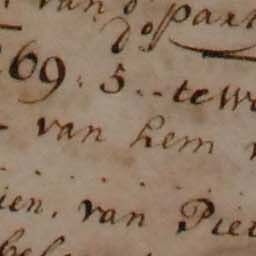 van d
d° paar
69. 5.. tew
van hem
ien. van Piet